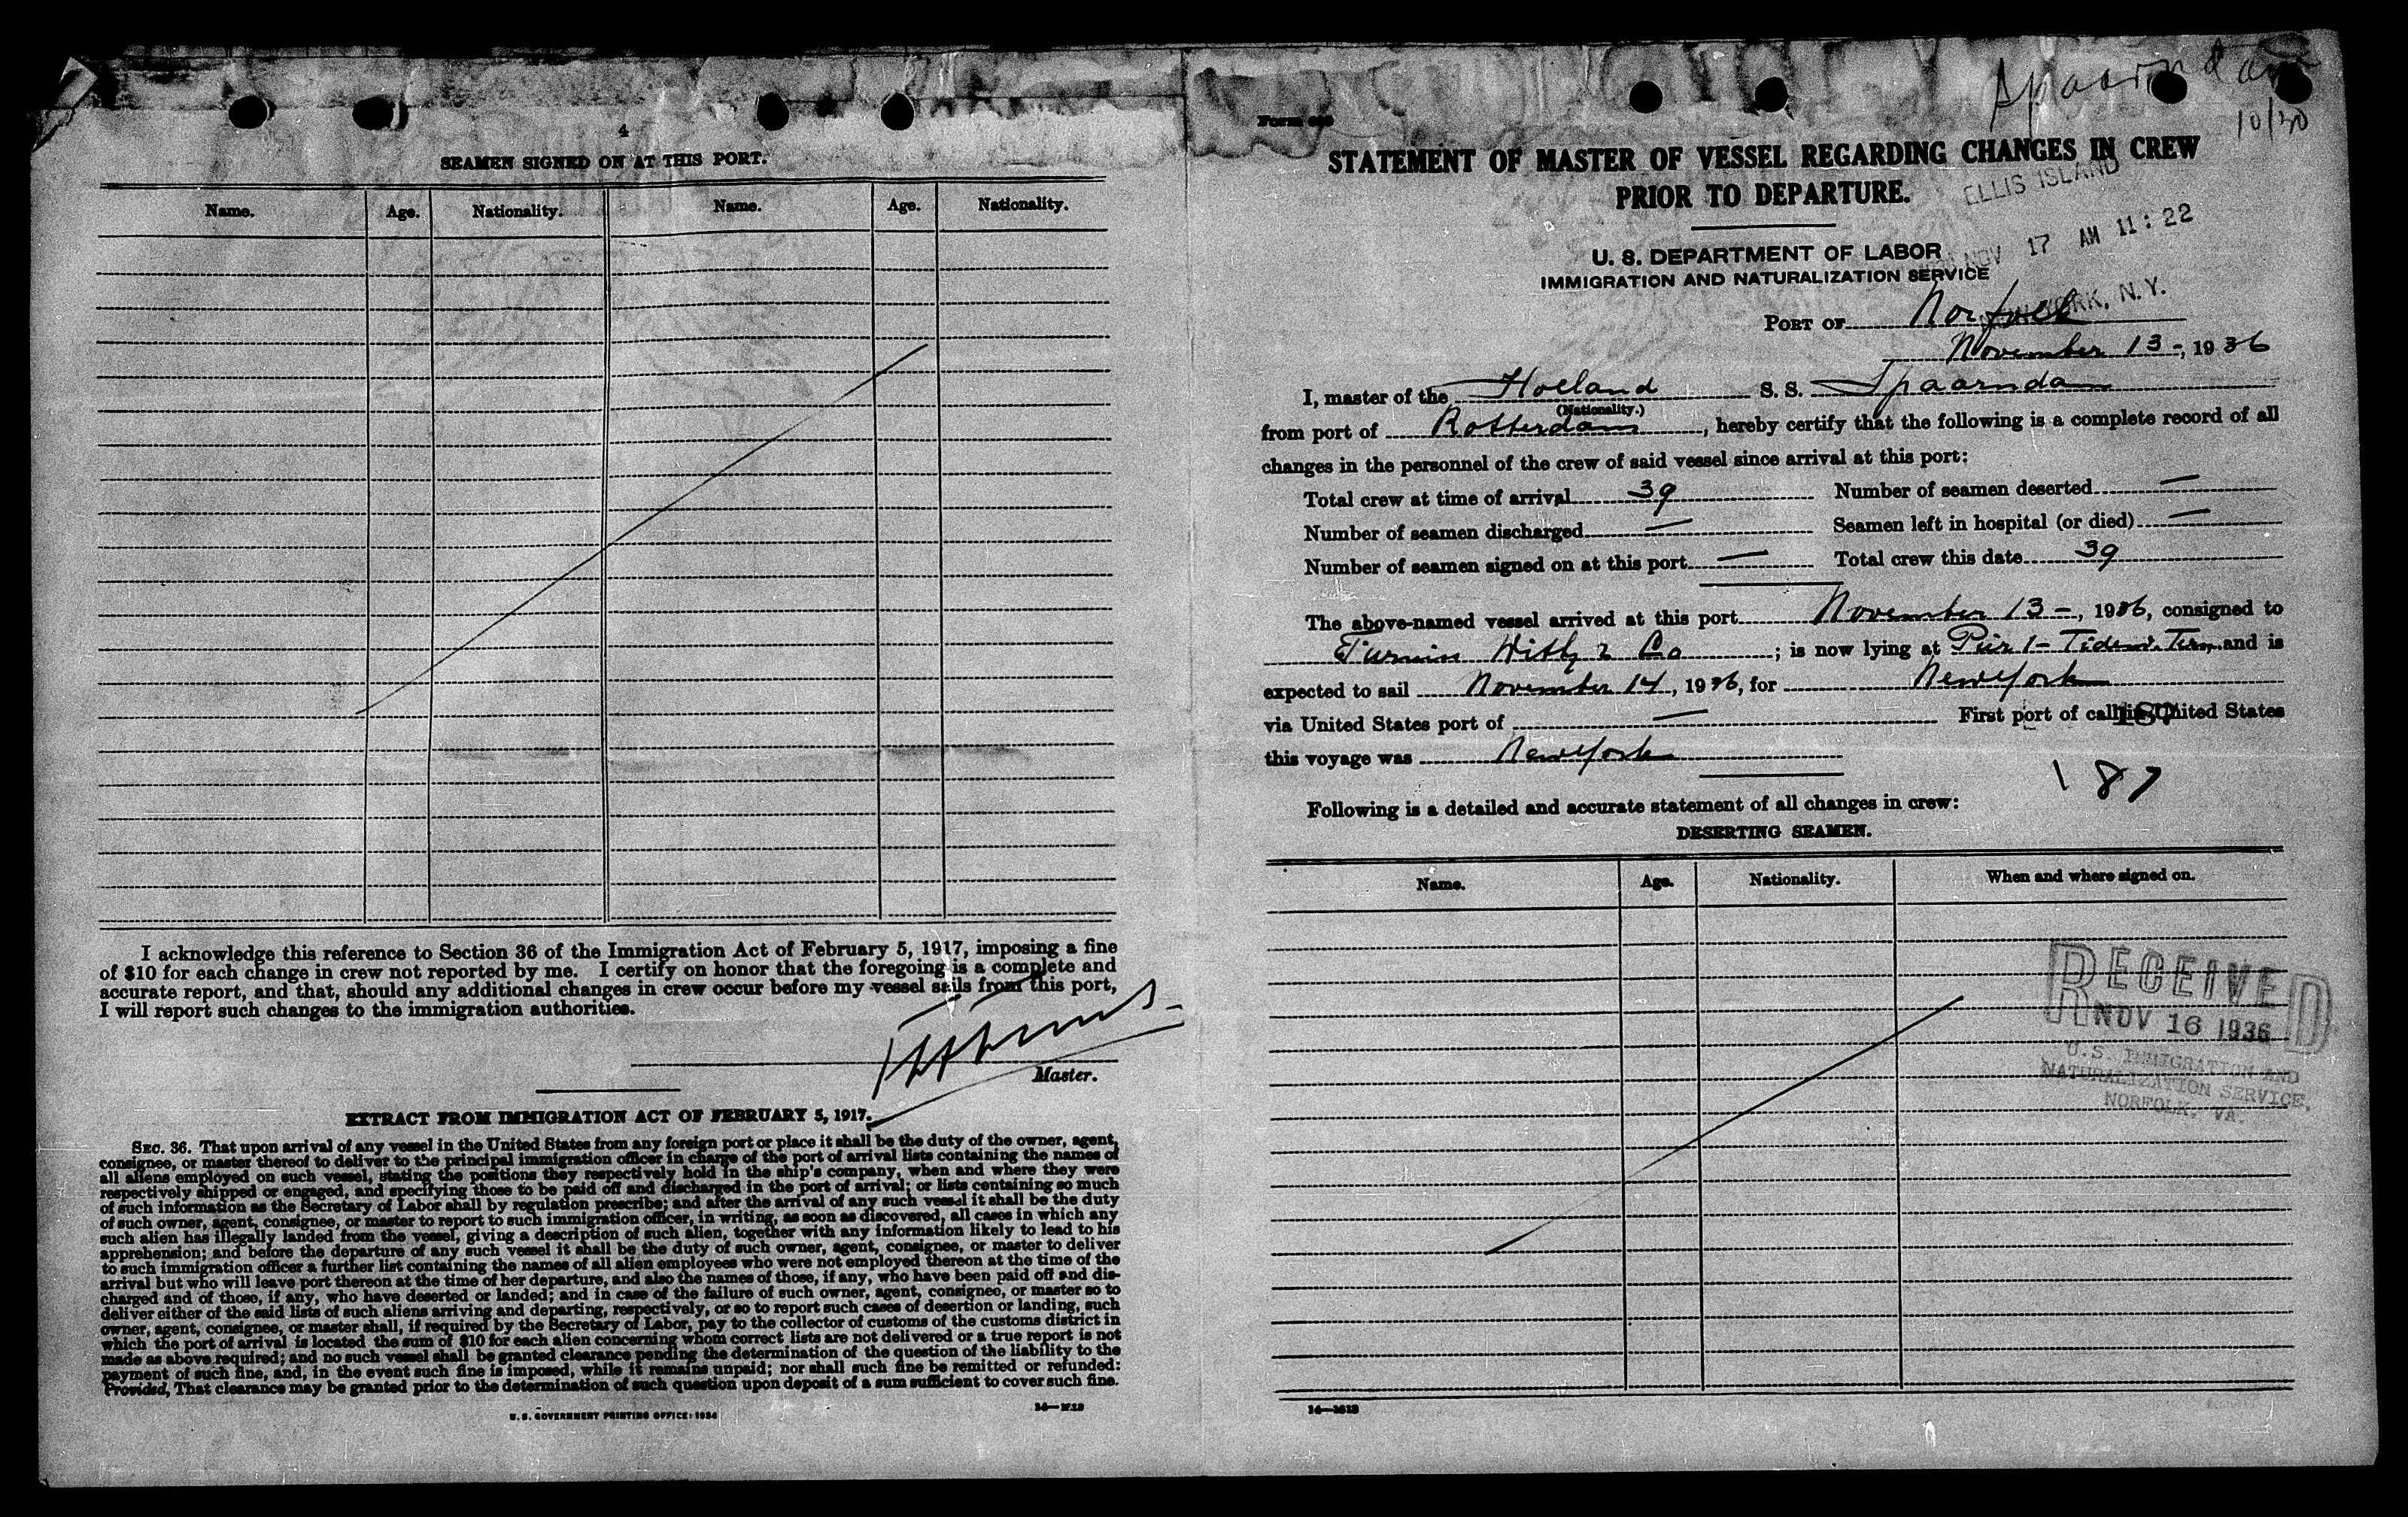 4
SEAMEN SIGNED ON AT THIS PORT.
Name. Age. Nationality. Name. Age. Nationality.
I acknowledge this reference to Section 36 of the Immigration Act of February 5, 1917, imposing a fine
of $10 for each change in crew not reported by me. I certify on honor that the foregoing is a complete and
accurate report, and that, should any additional changes in crew occur before my vessel sails from this port,
I will report such changes to the immigration authorities.
Master.
EXTRACT FROM IMMIGRATION ACT OF FEBRUARY 5, 1917.
SEC. 36. That upon arrival of any vessel in the United States from any foreign port or place it shall be the duty of the owner, agent,
consignee, or master thereof to deliver to the principal immigration officer in charge of the port of arrival lists containing the names of
all aliens employed on such vessel, stating the positions they respectively hold in the ship's company, when and where they were
respectively shipped or engaged, and specifying those to be paid off and discharged in the port of arrival; or lists containing so much
of such information as the Secretary of Labor shall by regulation prescribe; and after the arrival of any such vessel it shall be the duty
of such owner, agent, consignee, or master to report to such immigration officer, in writing, as soon as discovered, all cases in which any
such alien has illegally landed from the vessel, giving a description of such alien, together with any information likely to lead to his
apprehension; and before the departure of any such vessel it shall be the duty of such owner, agent, consignee, or master to deliver
to such immigration officer a further list containing the names of all alien employees who were not employed thereon at the time of the
arrival but who will leave port thereon at the time of her departure, and also the names of those, if any, who have been paid off and dis-
charged and of those, if any, who have deserted or landed; and in case of the failure of such owner, agent, consignee, or master so to
deliver either of the said lists of such aliens arriving and departing, respectively, or so to report such cases of desertion or landing, such
owner, agent, consignee, or master shall, if required by the Secretary of Labor, pay to the collector of customs of the customs district in
which the port of arrival is located the sum of $10 for each alien concerning whom correct lists are not delivered or a true report is not
made as above required; and no such vessel shall be granted clearance pending the determination of the question of the liability to the
payment of such fine, and, in the event such fine is imposed, while it remains unpaid; nor shall such fine be remitted or refunded:
Provided, That clearance may be granted prior to the determination of such question upon deposit of a sum sufficient to cover such fine.
U. S. GOVERNMENT PRINTING OFFICE: 1934
Spaarndam
10/30
Form
STATEMENT OF MASTER OF VESSEL REGARDING CHANGES IN CREW
PRIOR TO DEPARTURE.
ELLIS ISLAND
NOV 17 AM 11:22
NEW YORK, N.Y.
U. S. DEPARTMENT OF LABOR
IMMIGRATION AND NATURALIZATION SERVICE
PORT OF Norfolk
November 13 -, 1936
I, master of the Holland S. S. Spaarndam
(Nationality.)
from port of Rotterdam, hereby certify that the following is a complete record of all
changes in the personnel of the crew of said vessel since arrival at this port:
Total crew at time of arrival 39 Number of seamen deserted —
Number of seamen discharged — Seamen left in hospital (or died) —
Number of seamen signed on at this port — Total crew this date 39
The above-named vessel arrived at this port November 13 -, 1936, consigned to
Furniss Withy & Co; is now lying at Pier 1 - Tidew. Term. and is
expected to sail November 14, 1936, for New York
via United States port of — First port of call in United States
this voyage was New York
187
Following is a detailed and accurate statement of all changes in crew:
DESERTING SEAMEN.
Name. Age. Nationality. When and where signed on.
RECEIVED
NOV 16 1936
U.S. IMMIGRATION AND
NATURALIZATION SERVICE.
NORFOLK, VA.